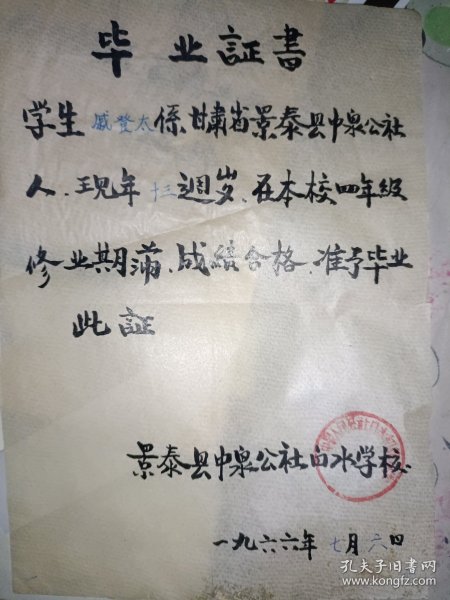 毕业証書
学生戚登太係甘肅省景泰县中泉公社
人、现年十三週岁、在本校四年級
修业期满、成结合格、准予毕业
此証
景泰县中泉公社白水学校
一九六六年七月六日
孔夫子旧书网
www.kongfz.com